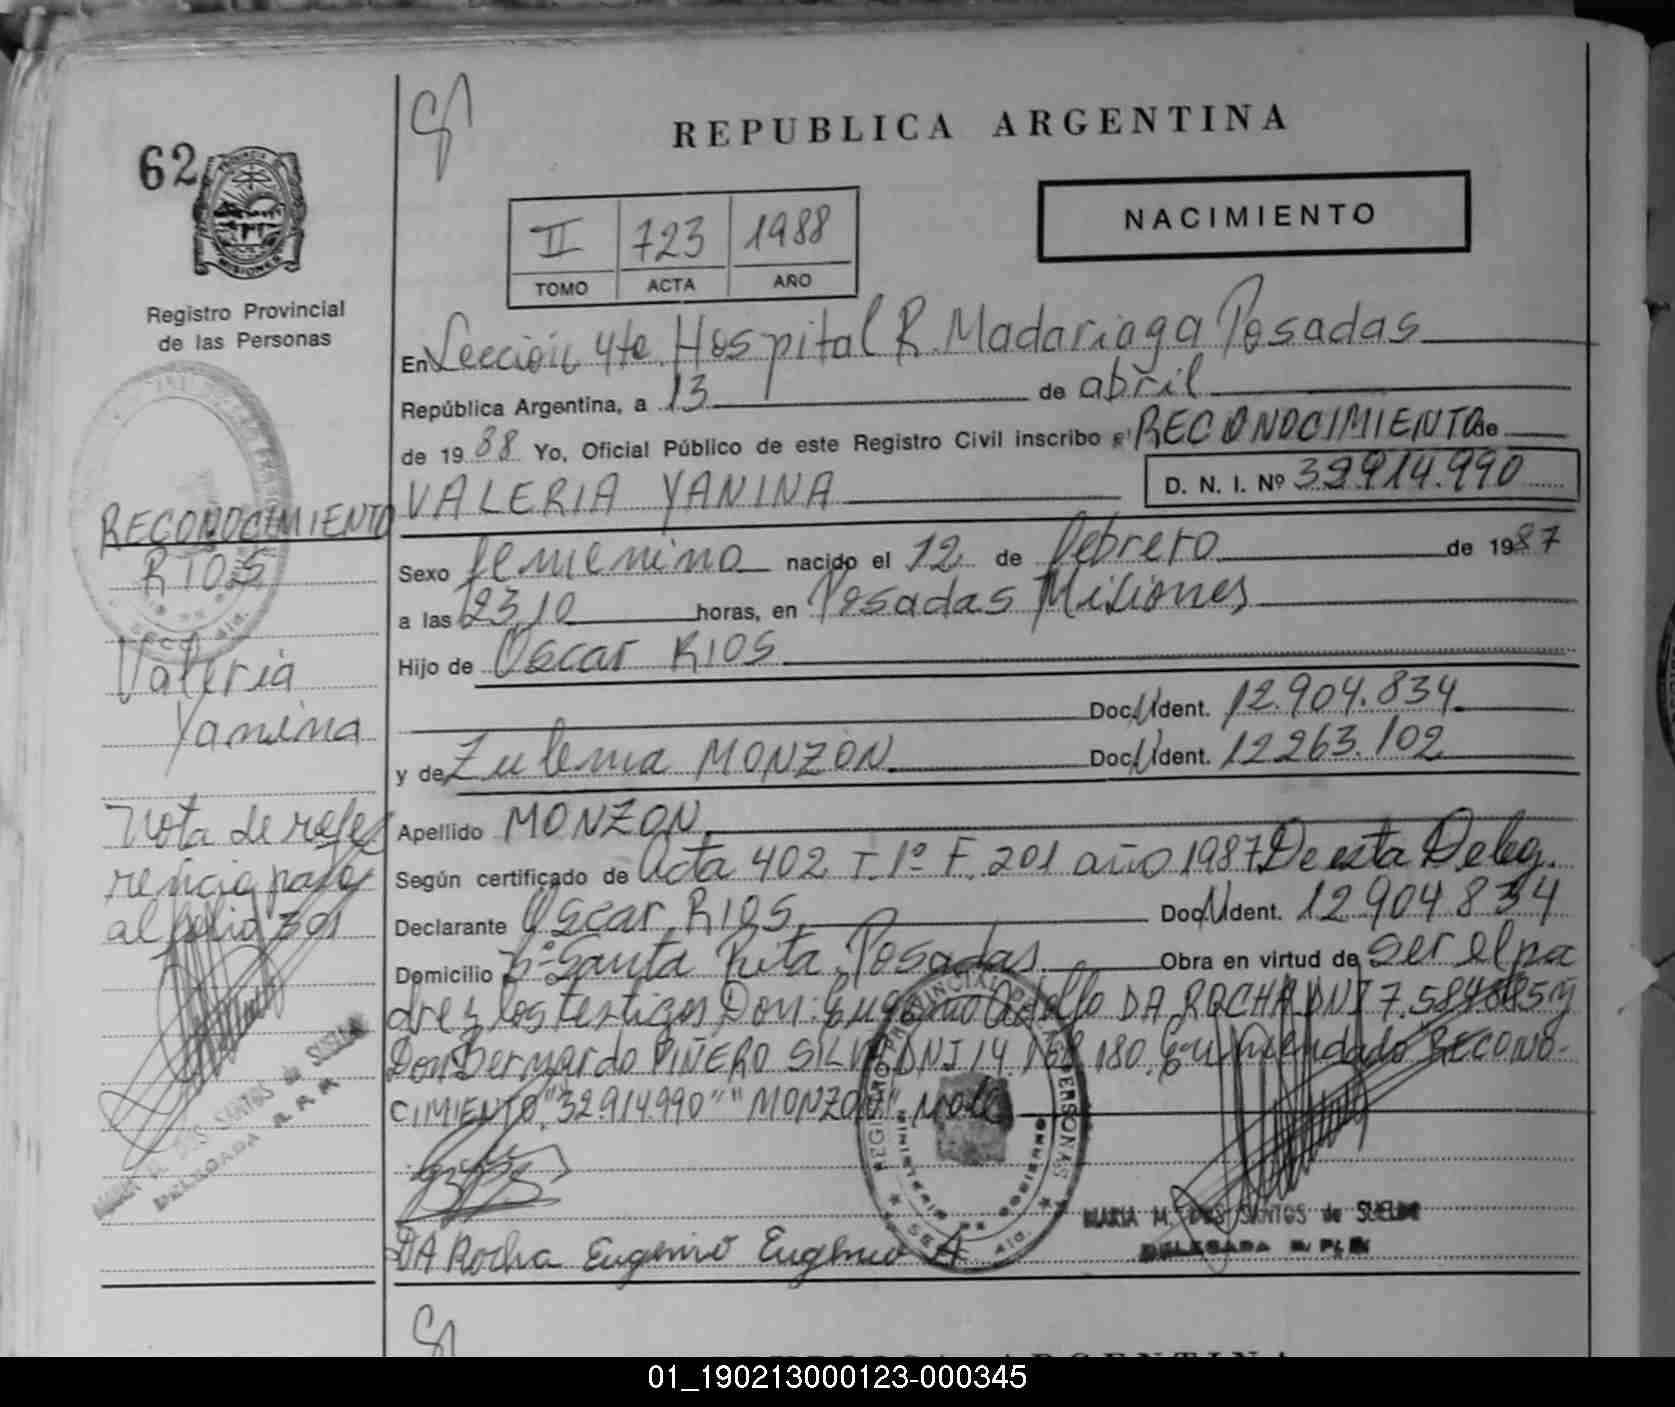 62
PROVINCIA DE
MISIONES
Registro Provincial
de las Personas
REPUBLICA ARGENTINA
II 723 1988
TOMO ACTA AÑO
NACIMIENTO
En Sección 4ta Hospital R. Madariaga Posadas
República Argentina, a 13 de abril
de 1988 Yo, Oficial Público de este Registro Civil inscribo el RECONOCIMIENTO de
VALERIA YANINA D. N. I. Nº 32914.990
Sexo femenino nacido el 12 de febrero de 1987
a las 23,10 horas, en Posadas Misiones
Hijo de Oscar RIOS
Doc. Ident. 12.904.834
y de Zulema MONZON Doc. Ident. 12263.102
Apellido MONZON
Según certificado de Acta 402 T. 1º F. 201 año 1987 De esta Deleg.
Declarante Oscar RIOS Doc. Ident. 12904834
Domicilio Bº Santa Rita, Posadas Obra en virtud de ser el pa
dre y los testigos Don: Eugenio Adolfo DA ROCHA DNI 7.584685 y
Don Bernardo PIÑERO SILVA DNI 14 180. Enmendado RECONO-
CIMIENTO "32.914.990" "MONZON" Vale
DA Rocha Eugenio Eugenio A
REGISTRO PROVINCIAL DE LAS PERSONAS
MINISTERIO DE GOBIERNO
MARIA M. DOS SANTOS de SUELDO
DELEGADA R. P. P.
RECONOCIMIENTO
RIOS
Valeria
Yanina
Nota de refe
rencia pasa
al folio 301
MARIA M. DOS SANTOS de SUELDO
DELEGADA R. P. P.
REPUBLICA ARGENTINA
01_190213000123-000345